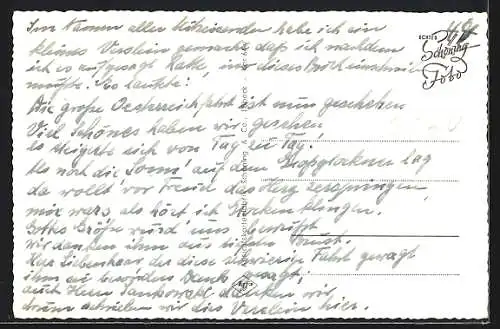 Im Namen aller Mitreisender habe ich ein
kleines Verslein gemacht, daß ich nachdem
ich es aufgesagt hatte, in dieses Buch einschreiben
mußte. Es lautete:
Die große Oesterreichfahrt ist nun geschehen
Viel Schönes haben wir gesehen,
es steigerte sich von Tag zu Tag.
Als noch die Sonn' auf dem Großglockner lag
da wollt' vor Freud das Herz zerspringen,
mir wars, als hört ich Glocken klingen.
Gottes Größe wurd' uns bewußt
wir danken ihm aus tiefer Brust.
Herr Liebenhaar der diese schwierige Fahrt gewagt
ihm sei besonders Dank gesagt,
auch Herrn danken wir
drum schreiben wir dies Verslein hier.
ECHTES
Schöning
Foto
Agfa